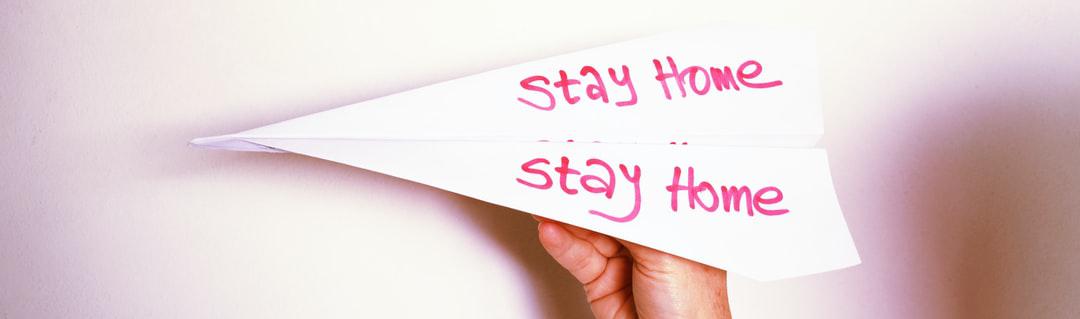 stay Home
stay Home